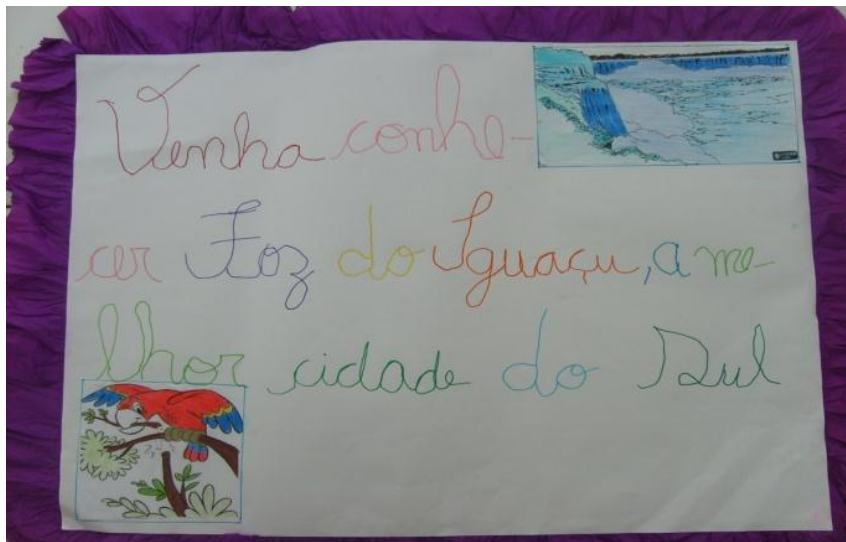 Venha conhe-
cer Foz do Iguaçu, a me-
lhor cidade do Sul